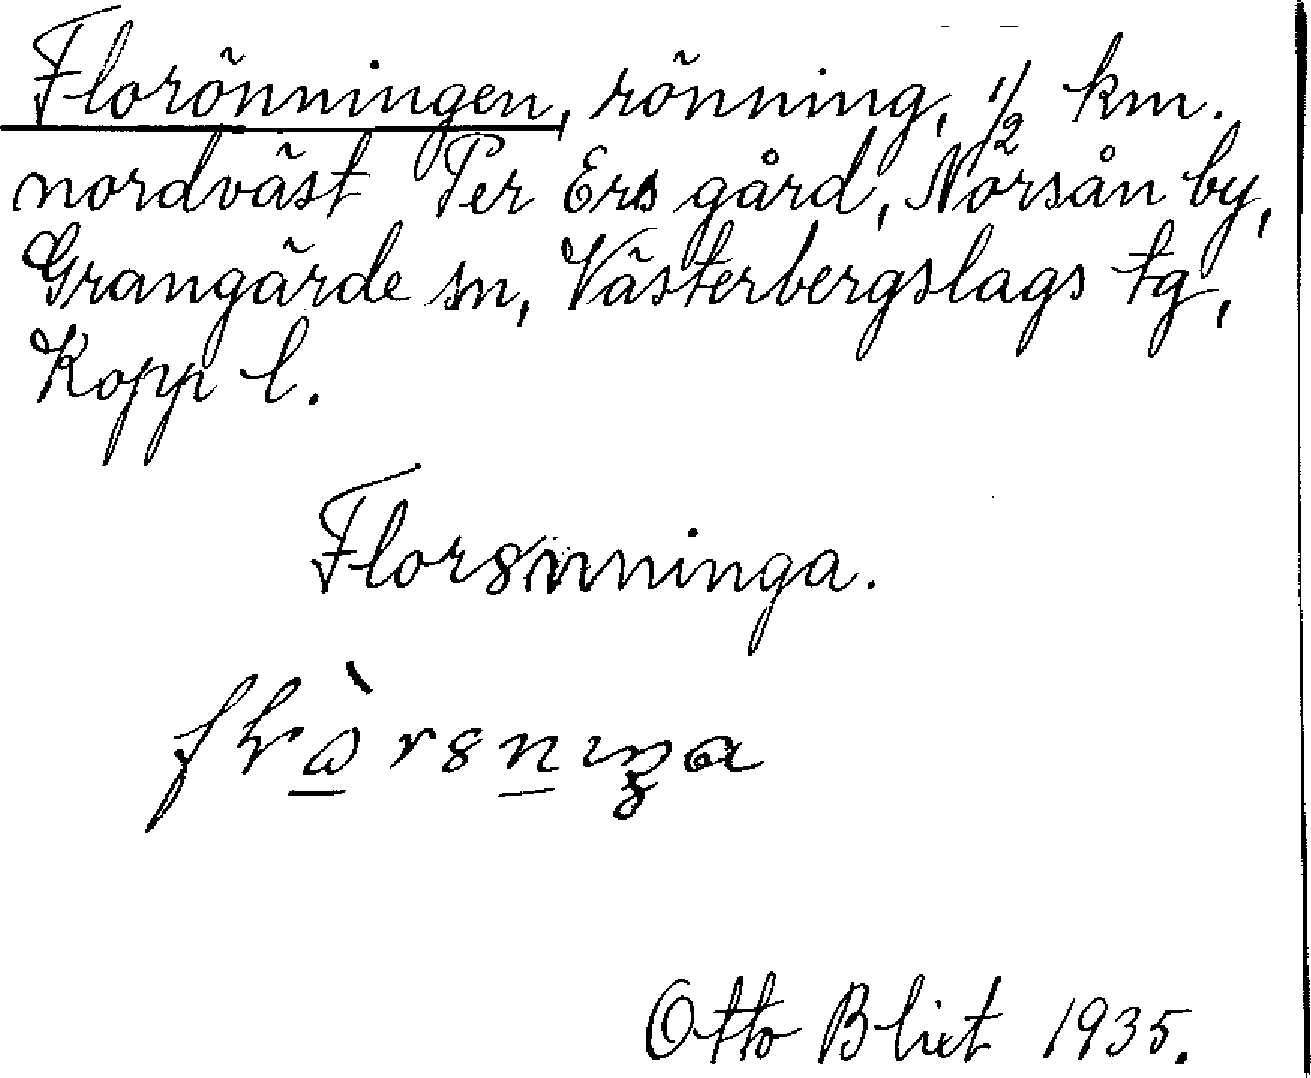 Florönningen, rönning, 1/2 km.
nordväst Per Ers gård, Norsån by,
Grangärde sn, Västerbergslags tg,
Kopp l.
Florsnninga.
Otto Blixt 1935.